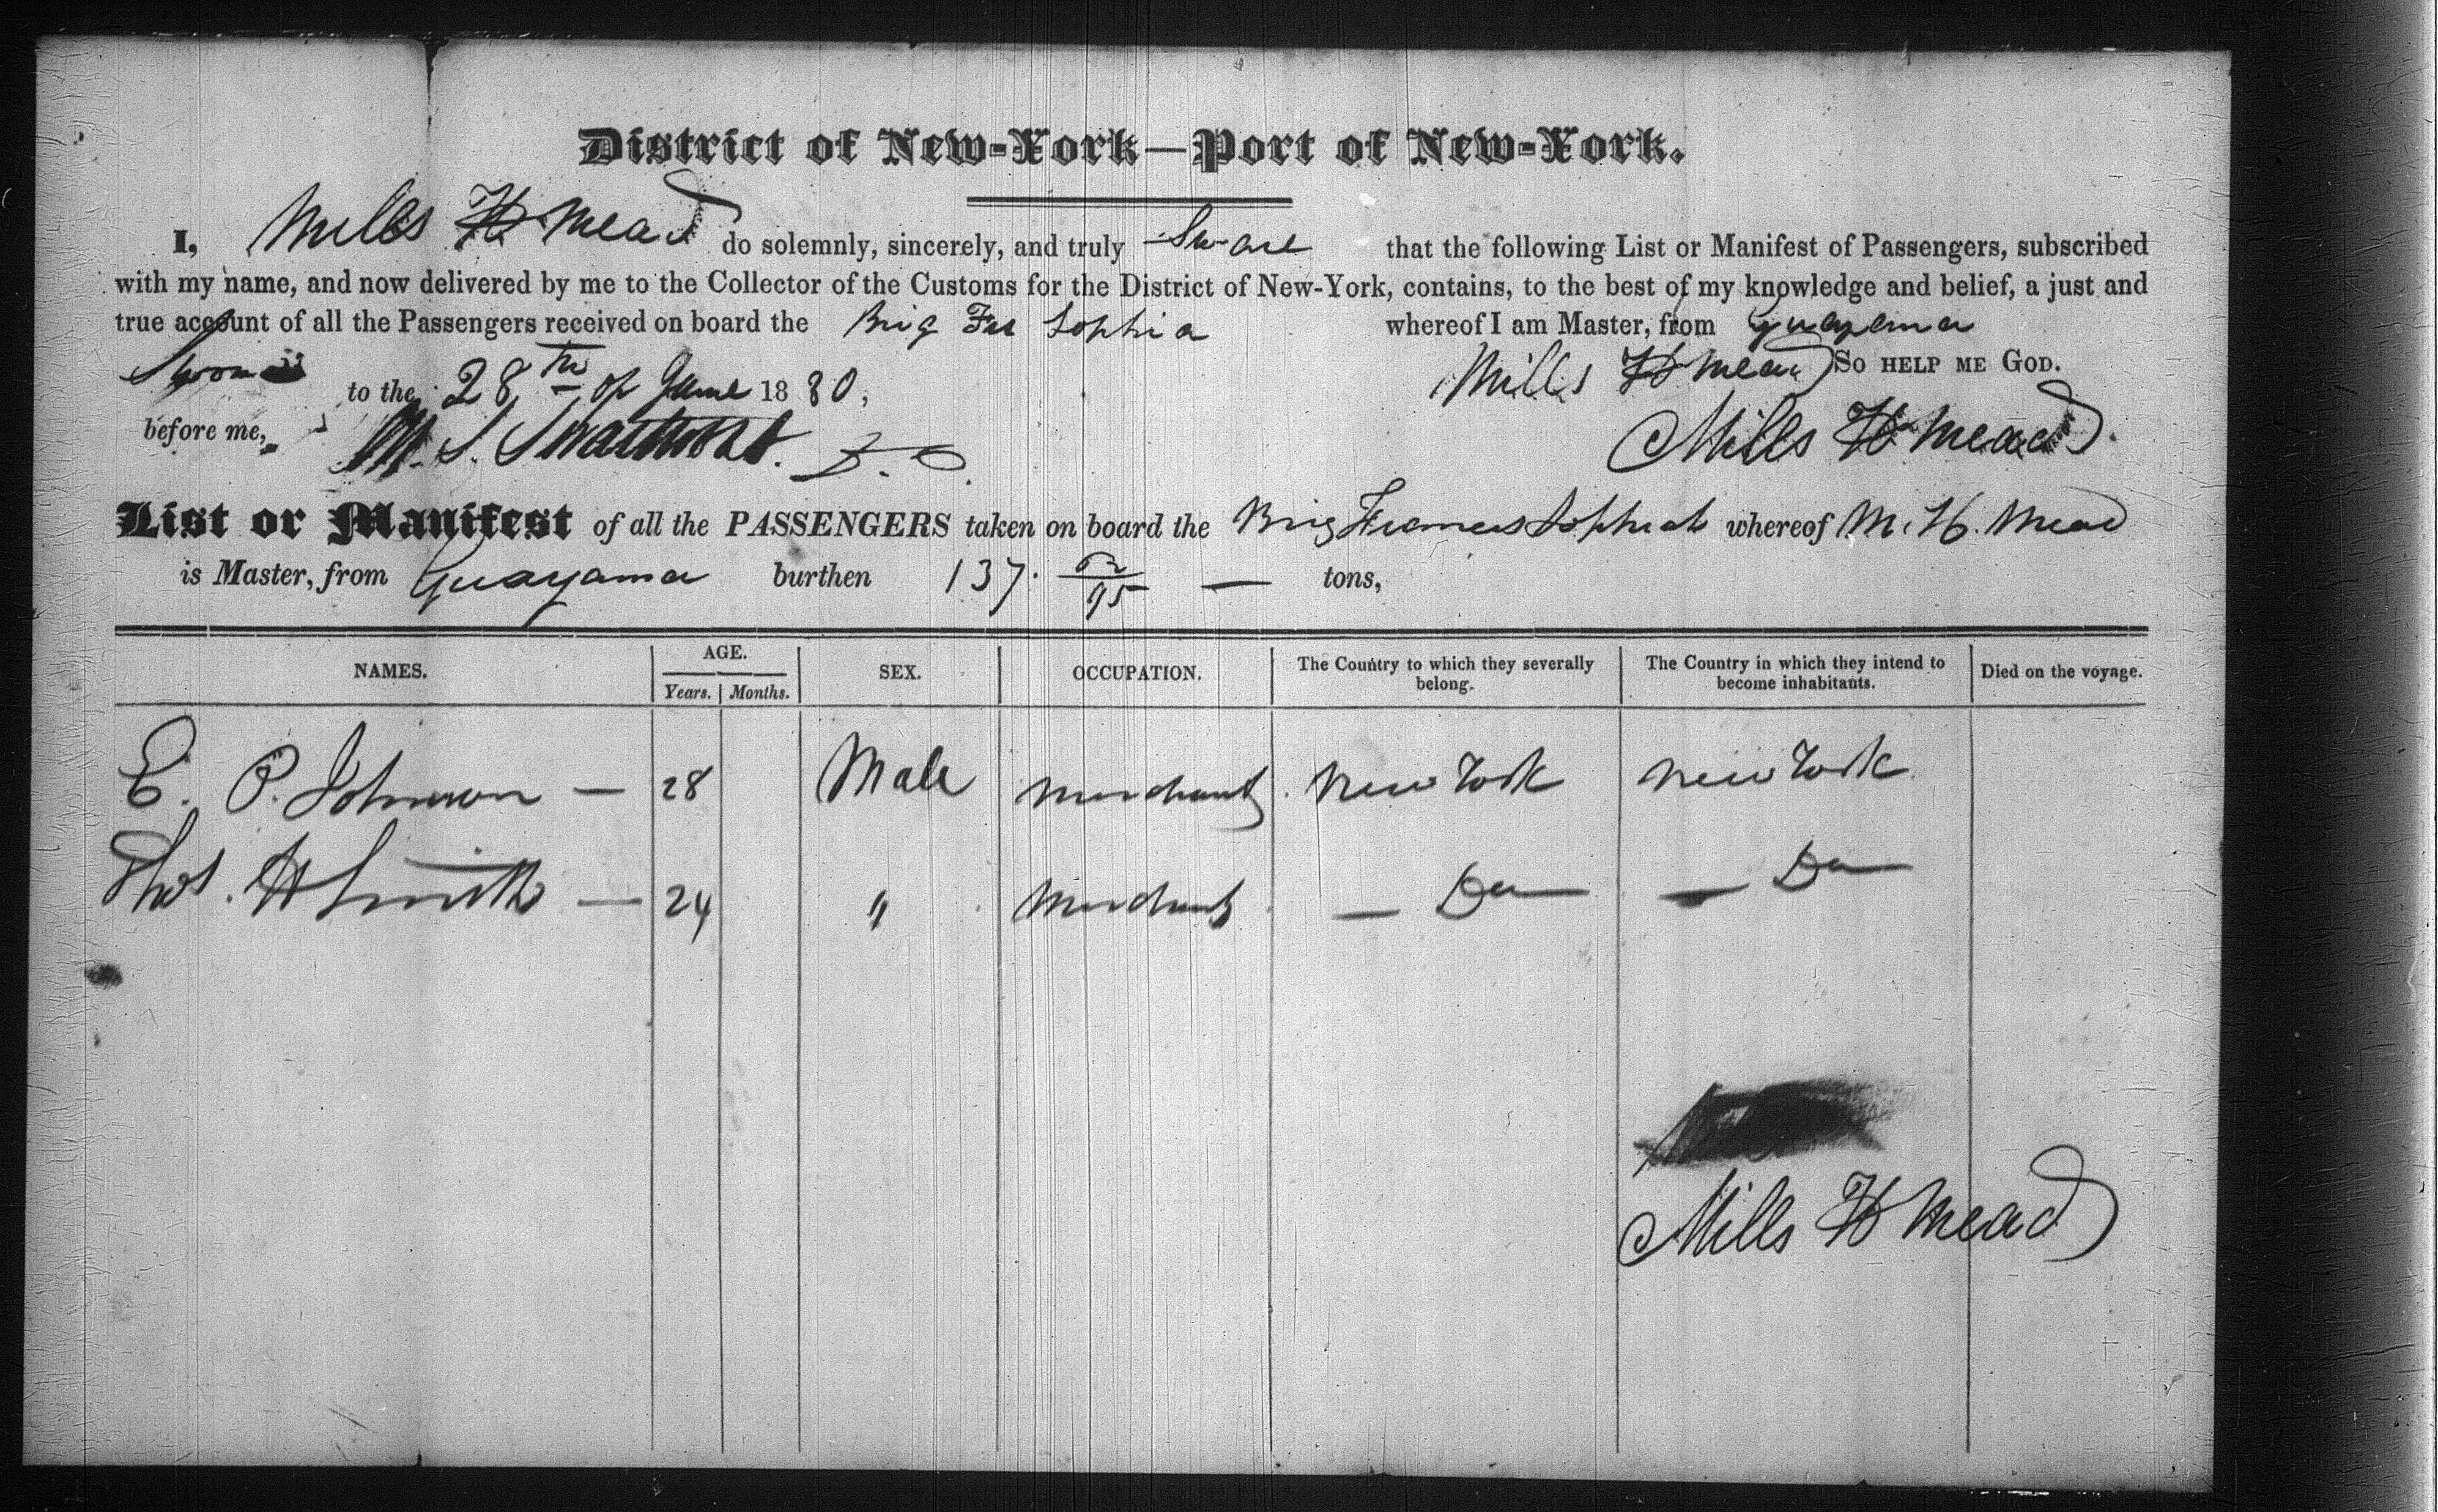 District of New-York—Port of New-York.
I, Mills H Mead do solemnly, sincerely, and truly Sware that the following List or Manifest of Passengers, subscribed
with my name, and now delivered by me to the Collector of the Customs for the District of New-York, contains, to the best of my knowledge and belief, a just and
true account of all the Passengers received on board the Brig Frs Sophia whereof I am Master, from Guayama
Sworn to the 28th of June 1830, Mills H Mead So help me God.
before me, M. S. Swartwout. D. C. Mills H Mead
List or Manifest of all the PASSENGERS taken on board the Brig Frances Sophiah whereof M. H. Mead
is Master, from Guayama burthen 137. /95 — tons,
NAMES. AGE. SEX. OCCUPATION. The Country to which they severally belong. The Country in which they intend to become inhabitants. Died on the voyage.
Years. Months.
E. P. Johnson — 28 Male Merchant New York New York
Thos. H Smith — 24 " Merchant — Do — — Do —
Mills H Mead